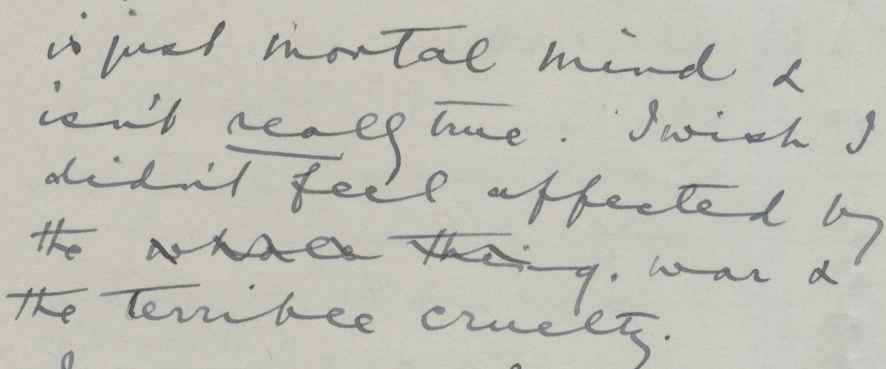 is just mortal mind &
isn't really true. I wish I
didn't feel affected by
the whole thing. war &
the terrible cruelty.